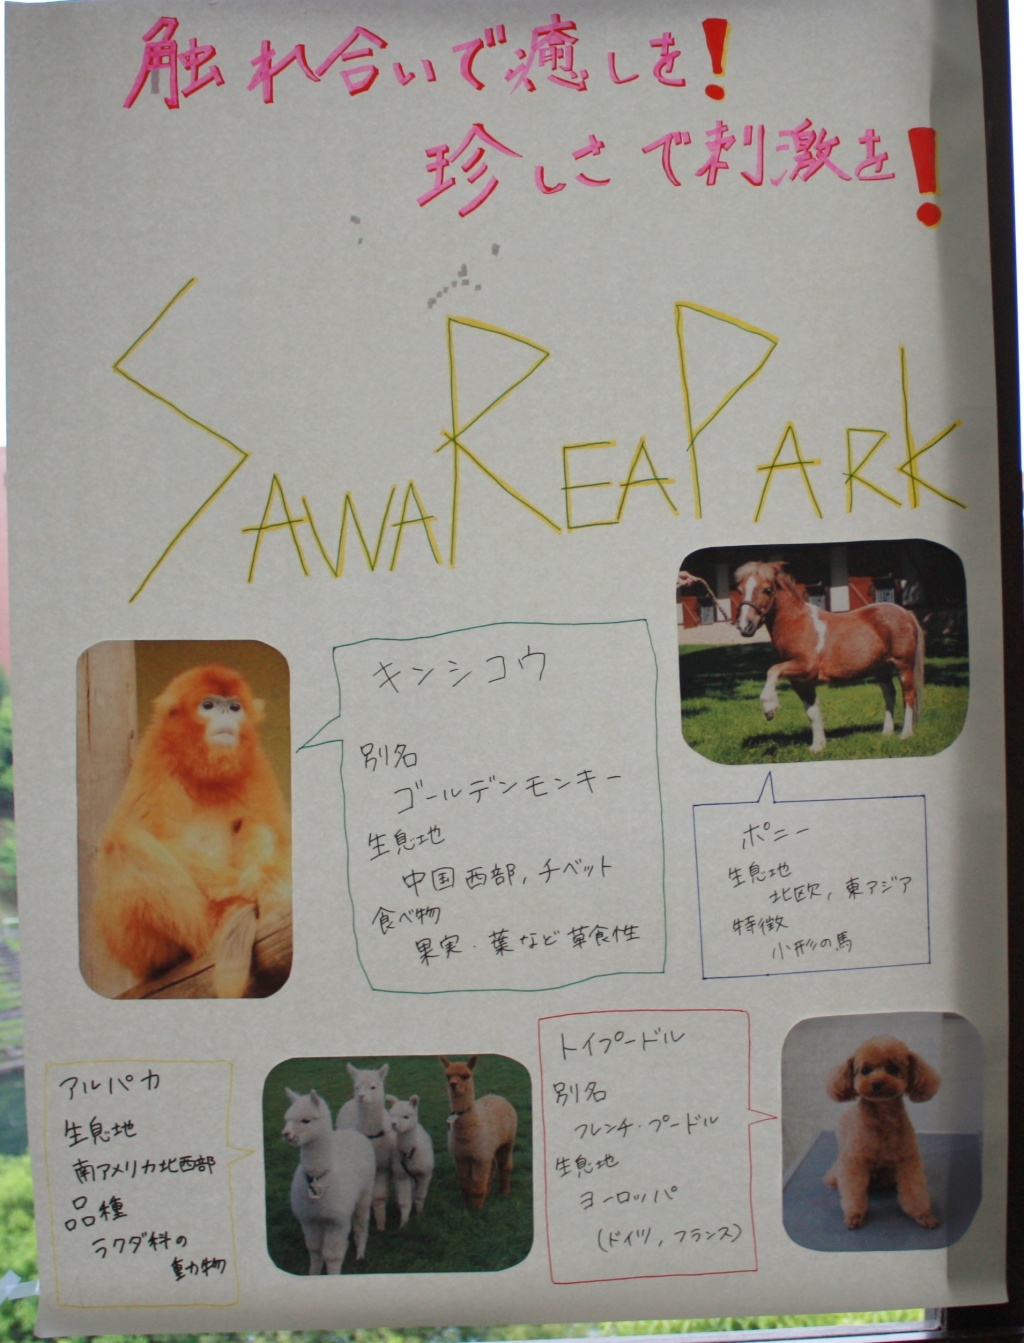 触れ合いで癒しを!
珍しさで刺激を!
SAWAREAPARK
キンシコウ
別名
ゴールデンモンキー
生息地
中国西部,チベット
食べ物
果実・葉など草食性
ポニー
生息地
北欧,東アジア
特徴
小形の馬
アルパカ
生息地
南アメリカ北西部
品種
ラクダ科の
動物
トイプードル
別名
フレンチ・プードル
生息地
ヨーロッパ
(ドイツ,フランス)